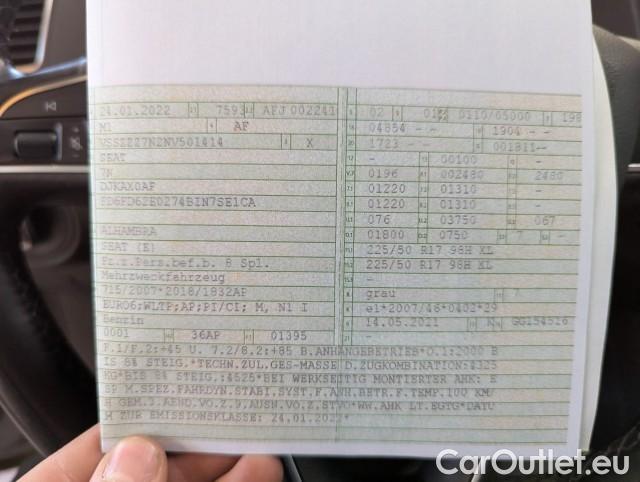 24.01.2022 7593 AFJ 002241
M1 AF
VSSZZZ7N2NV501414 X
SEAT
7N
DJKAX0AF
FD6FD62E0274BIN7SE1CA
ALHAMBRA
SEAT (E)
Fz.z.Pers.bef.b. 8 Spl.
Mehrzweckfahrzeug
715/2007*2018/1832AP
EURO6;WLTP;AP;PI/CI; M, N1 I
Benzin
0001 36AP 01395
02 0110/05000 198
04854 - - 1904 - -
1723 - - 001811-
- 00100 -
0196 002480 2480
01220 01310 -
01220 01310 -
076 03750 067
01800 0750 7 -
225/50 R17 98H XL
225/50 R17 98H XL
-
grau
e1*2007/46*0402*29
14.05.2021 N GG154526
F.1/F.2:+45 U. 7.2/8.2:+85 B.ANHÄNGEBETRIEB*O.1:2000 B
IS 8% STEIG.*TECHN.ZUL.GES-MASSE D.ZUGKOMBINATION:4325
KG*BIS 8% STEIG.:4525*BEI WERKSEITIG MONTIERTER AHK: E
SP M.SPEZ.FAHRDYN.STABI.SYST.F.ANH.BETR.F.TEMP.100 KM/
H GEM.3.ÄEND.VO.Z.9.AUSN.VO.Z.STVO*WW.AHK LT.EGTG*DATU
M ZUR EMISSIONSKLASSE: 24.01.2022*
CarOutlet.eu